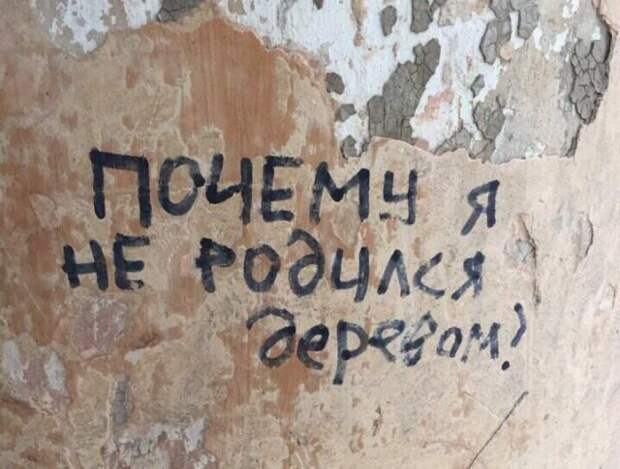 ПОЧЕМУ Я
НЕ РОДИЛСЯ
деревом?